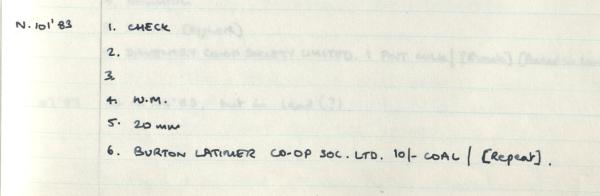 N. 101'83 1. CHECK
2.
3.
4. W.M.
5. 20 mm
6. BURTON LATIMER CO-OP SOC. LTD. 10/- COAL / [Repeat].